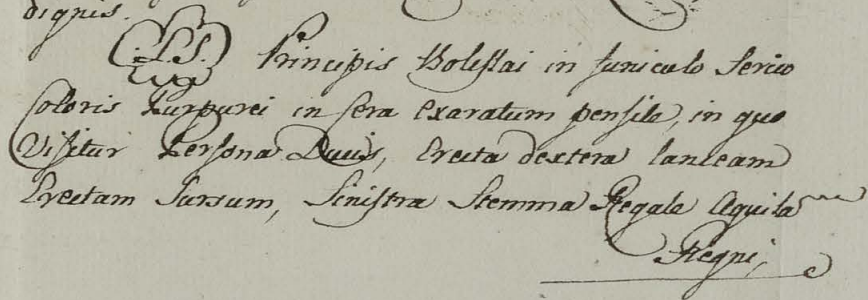 dignis.
L.S. Principis Boleslai in funiculo Serico
Coloris Purpurei in Cera exaratum pensile, in quo
Visitur Persona Ducis, Erecta dextera lanceam
Erectam Sursum, Sinistra Stemma Regale Aquila
Regni,